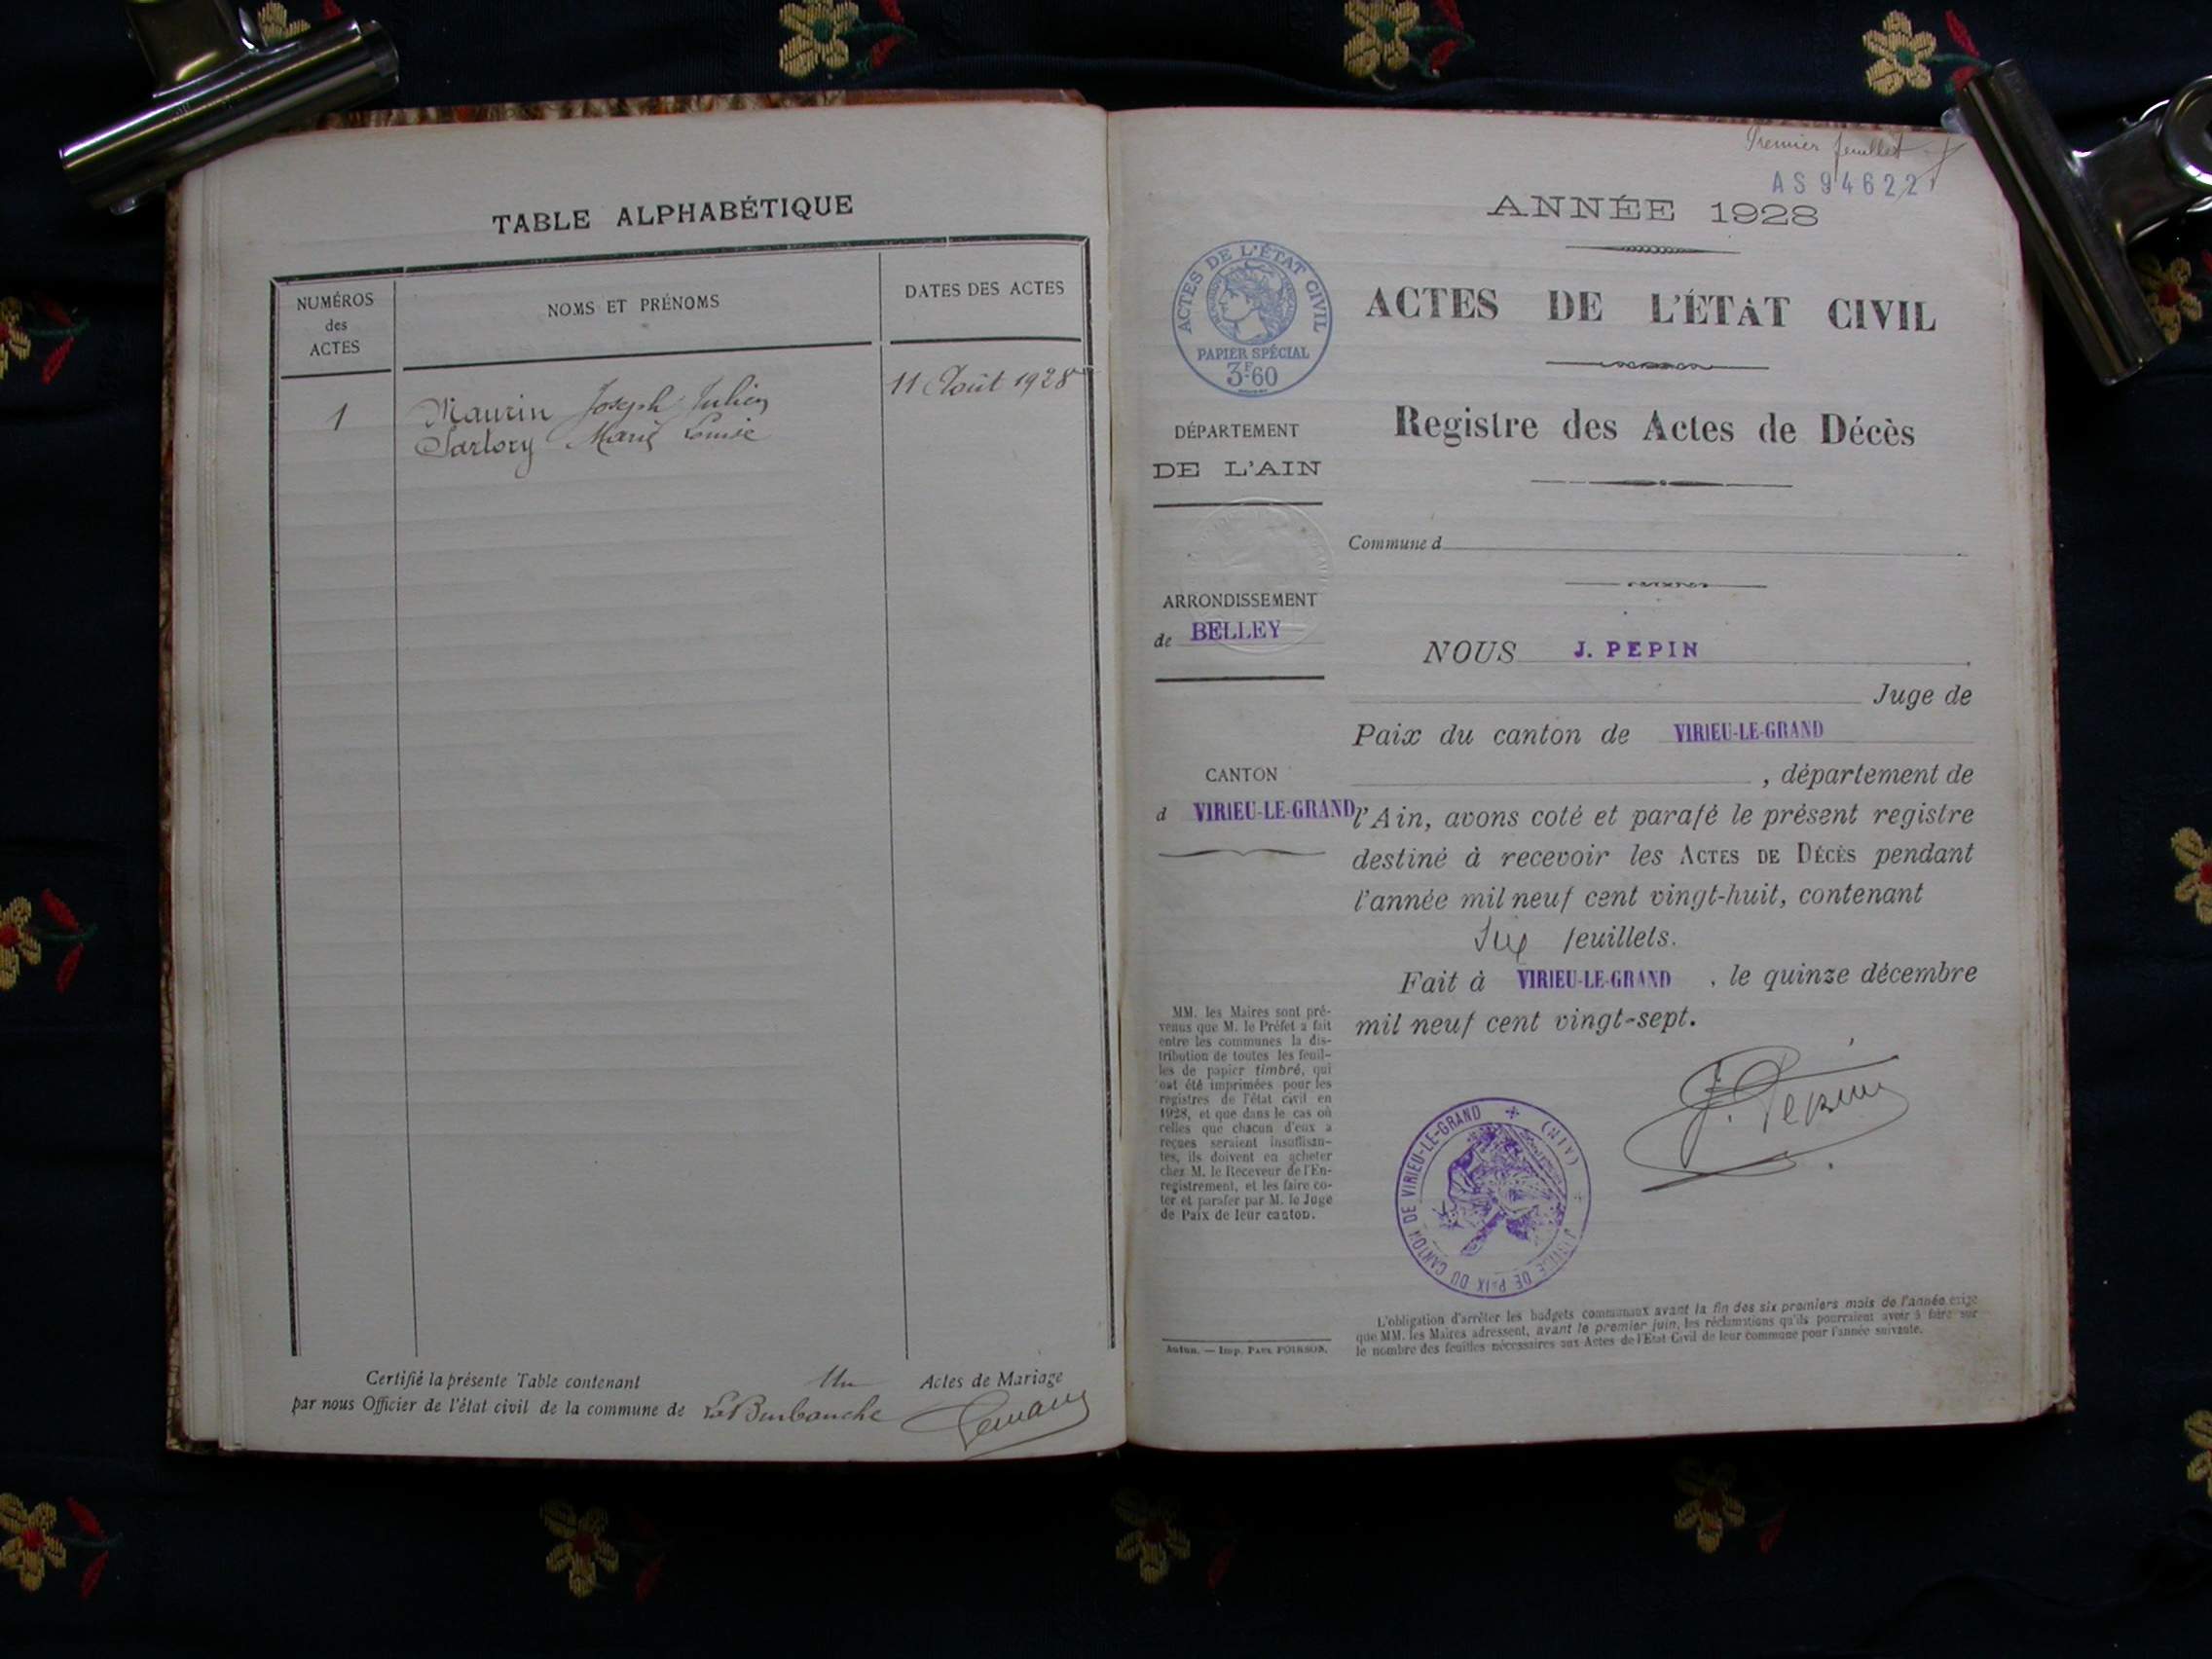 TABLE ALPHABÉTIQUE
NUMÉROS
des
ACTES
NOMS ET PRÉNOMS
DATES DES ACTES
1
Maurin Joseph Julien
Sartory Marie Louise
11 Août 1928
Certifié la présente Table contenant Un Actes de Mariage
par nous Officier de l'état civil de la commune de La Burbanche
Premier feuillet
AS 946221
ANNÉE 1928
ACTES DE L'ÉTAT CIVIL
PAPIER SPÉCIAL
3F60
ACTES DE L'ÉTAT CIVIL
Registre des Actes de Décès
DÉPARTEMENT
DE L'AIN
Commune d
ARRONDISSEMENT
de BELLEY
NOUS J. PEPIN
Juge de
Paix du canton de VIRIEU-LE-GRAND
, département de
CANTON
d VIRIEU-LE-GRAND
l'Ain, avons coté et parafé le présent registre
destiné à recevoir les ACTES DE DÉCÈS pendant
l'année mil neuf cent vingt-huit, contenant
Six feuillets.
Fait à VIRIEU-LE-GRAND , le quinze décembre
mil neuf cent vingt-sept.
J. Pepin
MM. les Maires sont pré-
venus que M. le Préfet a fait
entre les communes la dis-
tribution de toutes les feuil-
les de papier timbré, qui
ont été imprimées pour les
registres de l'état civil en
1928, et que dans le cas où
celles que chacun d'eux a
reçues seraient insuffisan-
tes, ils doivent en acheter
chez M. le Receveur de l'En-
registrement, et les faire co-
ter et parafer par M. le Juge
de Paix de leur canton.
JUSTICE DE PAIX DU CANTON DE VIRIEU-LE-GRAND (AIN)
Autun. — Imp. PAUL POIRSON.
L'obligation d'arrêter les budgets communaux avant la fin des six premiers mois de l'année exige
que MM. les Maires adressent, avant le premier juin, les réclamations qu'ils pourraient avoir à faire sur
le nombre des feuilles nécessaires aux Actes de l'Etat Civil de leur commune pour l'année suivante.